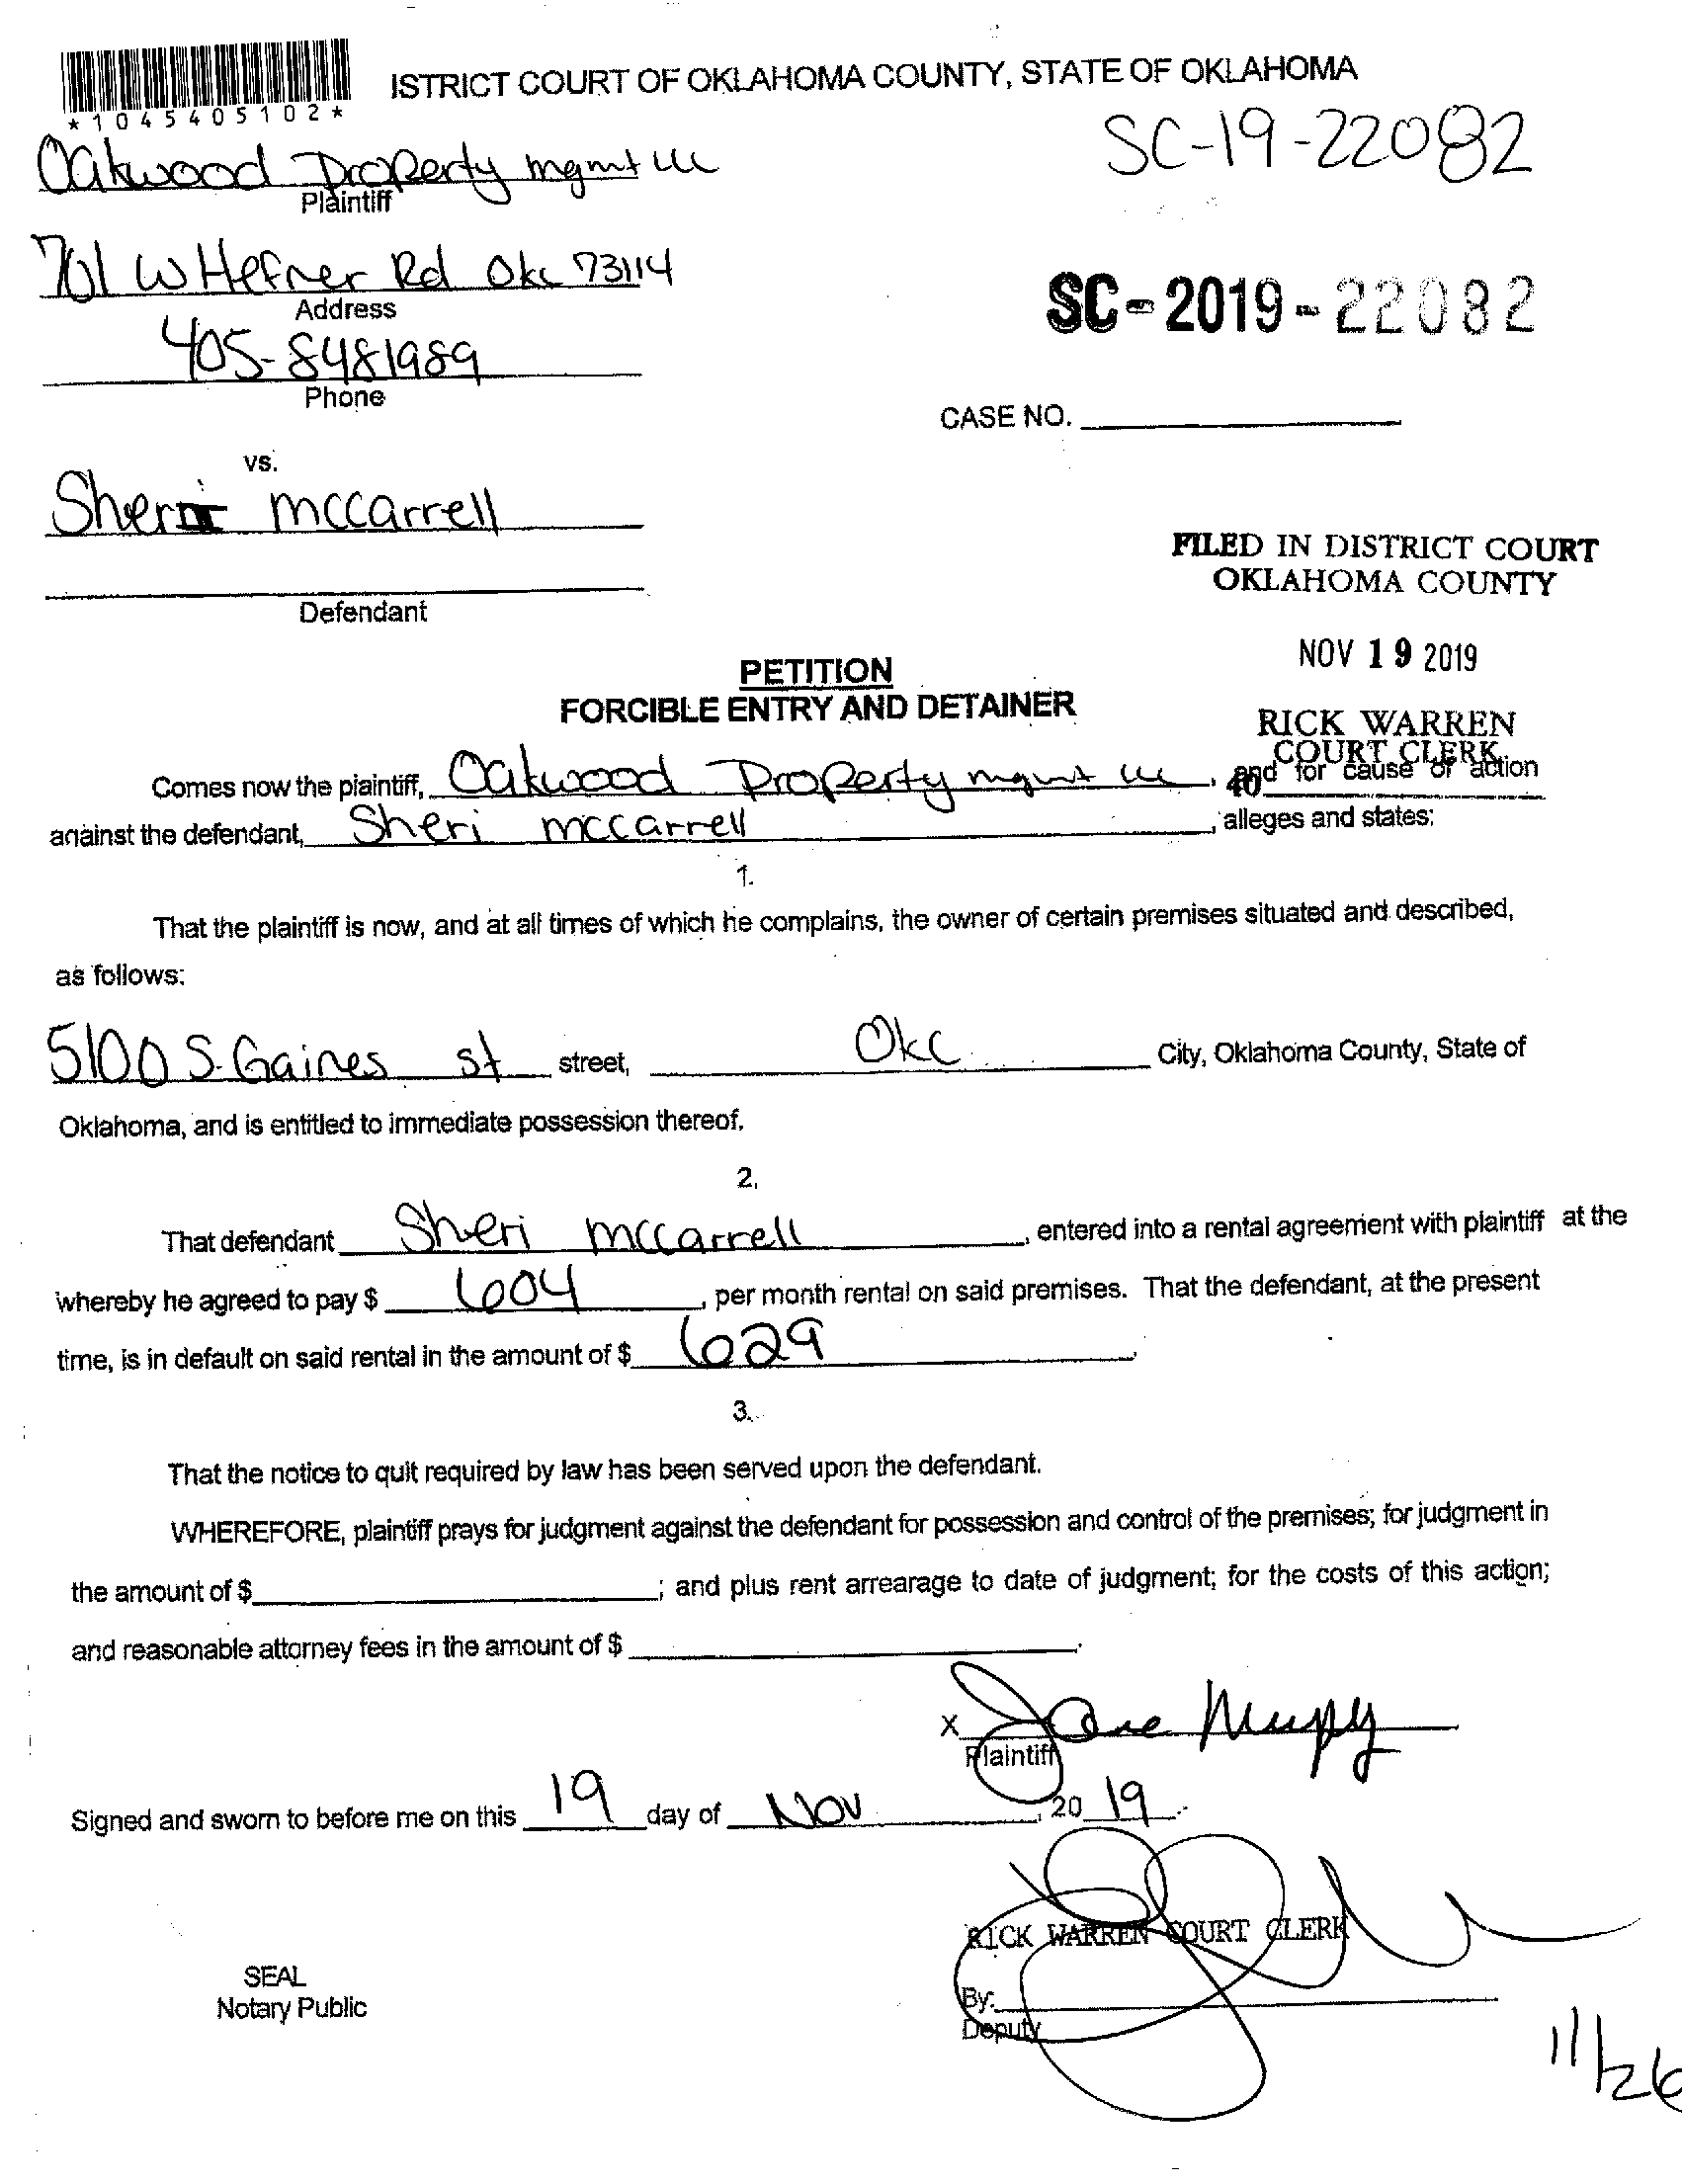 ISTRICT COURT OF OKLAHOMA COUNTY, STATE OF OKLAHOMA
*1045405102*
SC-19-22082
Oakwood Property mgmt llc
Plaintiff
701 W Hefner Rd Okc 73114
Address
SC-2019-22082
405-8481989
Phone
CASE NO.
vs.
Sheri mccarrell
FILED IN DISTRICT COURT
OKLAHOMA COUNTY
Defendant
NOV 19 2019
PETITION
FORCIBLE ENTRY AND DETAINER
RICK WARREN
COURT CLERK
40
Comes now the plaintiff, Oakwood Property mgmt llc, and for cause of action
against the defendant, Sheri mccarrell, alleges and states:
1.
That the plaintiff is now, and at all times of which he complains, the owner of certain premises situated and described,
as follows:
5100 S. Gaines st street, Okc City, Oklahoma County, State of
Oklahoma, and is entitled to immediate possession thereof.
2.
That defendant Sheri mccarrell, entered into a rental agreement with plaintiff at the
whereby he agreed to pay $ 604, per month rental on said premises. That the defendant, at the present
time, is in default on said rental in the amount of $ 629.
3.
That the notice to quit required by law has been served upon the defendant.
WHEREFORE, plaintiff prays for judgment against the defendant for possession and control of the premises; for judgment in
the amount of $; and plus rent arrearage to date of judgment; for the costs of this action;
and reasonable attorney fees in the amount of $.
X
Plaintiff
Signed and sworn to before me on this 19 day of Nov, 20 19.
RICK WARREN COURT CLERK
SEAL
Notary Public
By:
Deputy
11/26